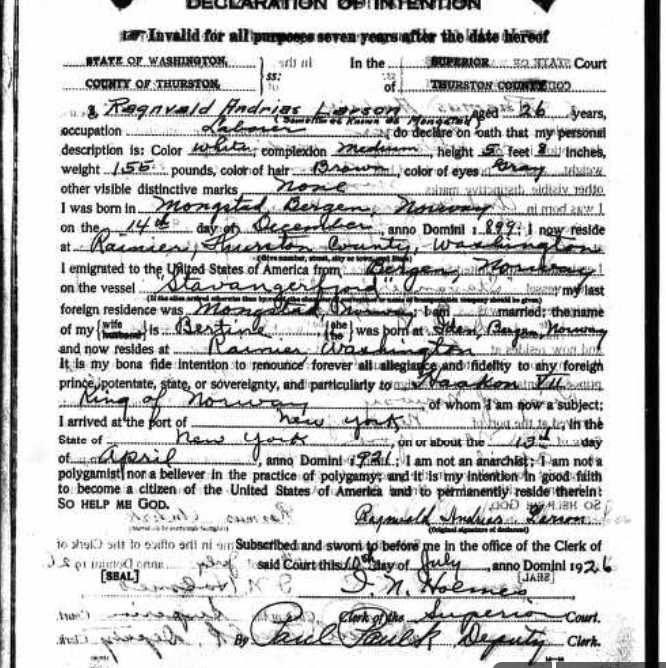 DECLARATION OF INTENTION
Invalid for all purposes seven years after the date hereof
STATE OF WASHINGTON, In the SUPERIOR Court
COUNTY OF THURSTON. ss: of THURSTON COUNTY
I, Ragnvald Andrias Larson aged 26 years,
(Sometimes Known as Mongstad)
occupation Laborer, do declare on oath that my personal
description is: Color white, complexion medium, height 5 feet 8 inches,
weight 155 pounds, color of hair Brown, color of eyes Gray
other visible distinctive marks None
I was born in Mongstad Bergen, Norway
on the 14th day of December, anno Domini 1899; I now reside
at Rainier, Thurston County, Washington
(Give number, street, city or town, and State)
I emigrated to the United States of America from Bergen, Norway
on the vessel Stavangerfjord; my last
foreign residence was Mongstad Norway; I am married; the name
of my wife husband is Bertine; she he was born at Bergen, Norway
and now resides at Rainier Washington
It is my bona fide intention to renounce forever all allegiance and fidelity to any foreign
prince, potentate, state, or sovereignty, and particularly to Haakon VII
King of Norway, of whom I am now a subject;
I arrived at the port of New York, in the
State of New York, on or about the 13th day
of April, anno Domini 1921; I am not an anarchist; I am not a
polygamist nor a believer in the practice of polygamy; and it is my intention in good faith
to become a citizen of the United States of America and to permanently reside therein:
SO HELP ME GOD.
Ragnvald Andrias Larson
(Original signature of declarant)
Subscribed and sworn to before me in the office of the Clerk of
said Court this 10th day of July, anno Domini 1926
[SEAL] I. N. Holmes
Clerk of the Superior Court.
By Paul Deputy Clerk.